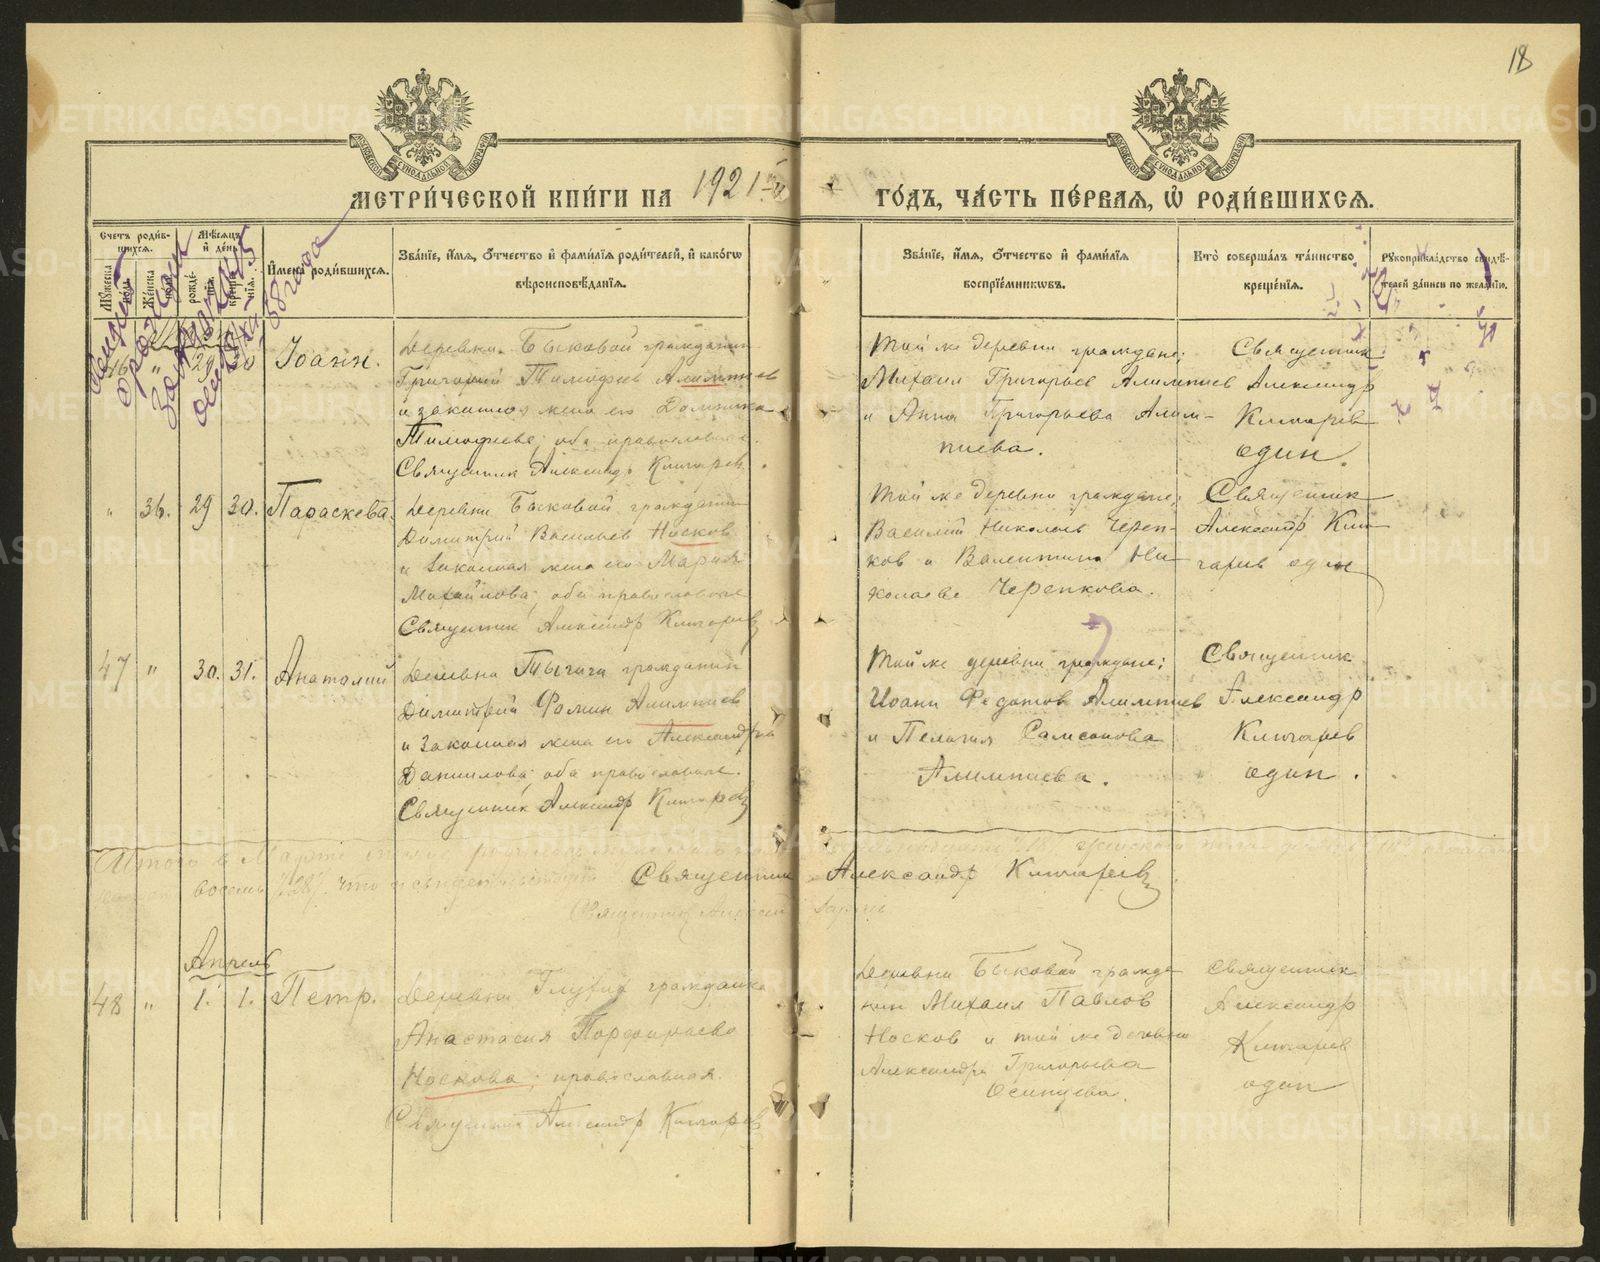 18
МЕТРИ́ЧЕСКОЙ КНИ́ГИ НА 1921-й ГО́ДЪ, ЧА́СТЬ ПЕ́РВАЯ, Ѡ РОДИ́ВШИХСЯ.
Счетъ роди́вшихся.
Мѣ́сяцъ и҆ де́нь
Му́жеска по́ла.
Же́нска по́ла.
рожде́нїя.
креще́нїя.
И҆мена̀ роди́вшихся.
Зва́нїе, и҆́мя, ѻ҆́тчество и҆ фами́лїя роди́телей, и҆ како́гѡ
вѣроисповѣ́данїя.
Зва́нїе, и҆́мя, ѻ҆́тчество и҆ фами́лїя
воспрїе́мникѡвъ.
Кто̀ соверша́лъ та́инство
креще́нїя.
Рꙋкоприкла́дство свидѣ́-
телей за́писи по жела́нїю.
46 " 29 30 Іоаннъ.
Деревни Быковой гражданин
Григорий Тимофеев Алимпиев
и законная жена его Домника
Тимофеева; оба православные.
Священник Александр Ключарев.
Той же деревни граждане:
Михаил Григорьев Алимпиев
и Анна Григорьева Алим-
пиева.
Священник
Александр
Ключарев
один.
" 36. 29 30. Параскева.
Деревни Быковой гражданин
Димитрий Васильев Носков
и законная жена его Мария
Михайлова; оба православные
Священник Александр Ключарев
Той же деревни граждане:
Василий Николаев Череп-
ков и Валентина Ни-
колаева Черепкова.
Священник
Александр Клю-
чарев один
47 " 30. 31. Анатолий
Деревни гражданин
Димитрий Фомин Алимпиев
и законная жена его Александра
Даниилова; оба православные.
Священник Александр Ключарев
Той же деревни граждане:
Иоанн Федотов Алимпиев
и Пелагия Самсонова
Алимпиева.
Священник
Александр
Ключарев
один.
Итого в Марте
восемь /28/, что и свидетельствуем Священник Александр Ключарев
Священник
Апрель
48 " 1. 1. Петр.
Деревни гражданка
Анастасия Порфирьева
Носкова; православная.
Священник Александр Ключарев
Деревни Быковой гражда-
нин Михаил Павлов
Носков и той же деревни
Александра Григорьева
Осинцева.
Священник
Александр
Ключарев
один
METRIKI.GASO-URAL.RU